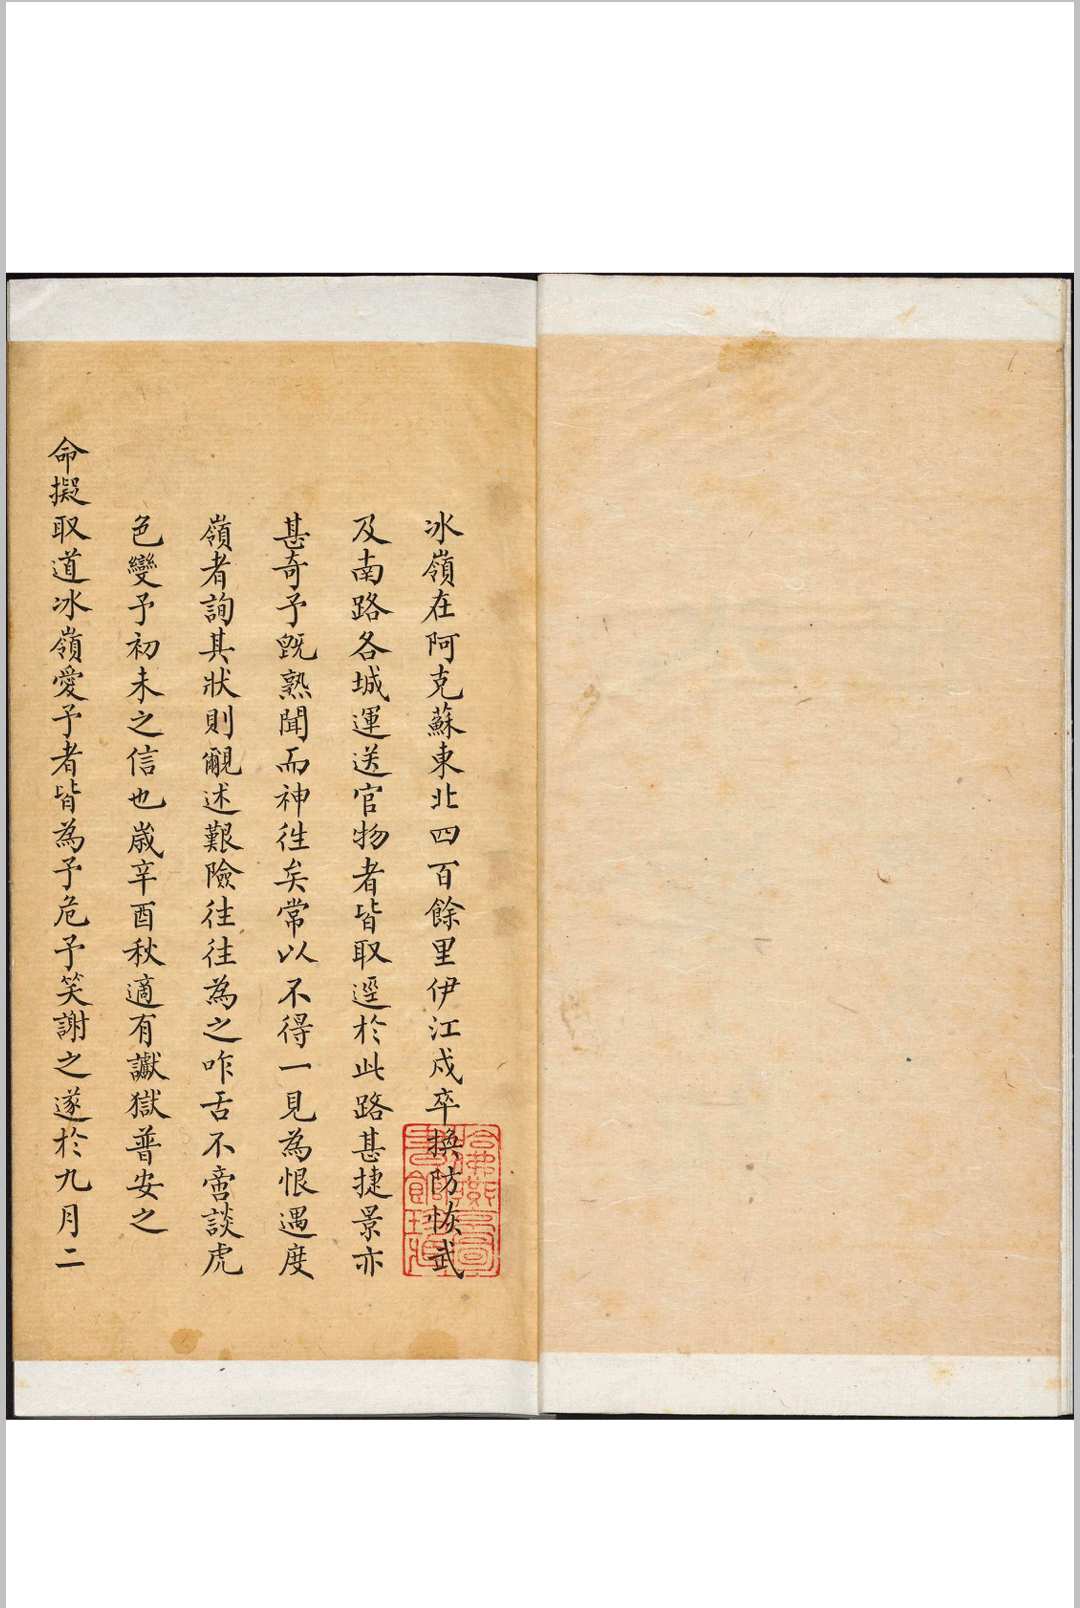 冰嶺在阿克蘇東北四百餘里伊江戍卒換防恢武
及南路各城運送官物者皆取逕於此路甚捷景亦
甚奇予既熟聞而神徃矣常以不得一見為恨遇度
嶺者詢其狀則覼述艱險往往為之咋舌不啻談虎
色變予初未之信也歲辛酉秋適有讞獄普安之
命擬取道冰嶺愛予者皆為予危予笑謝之遂於九月二
哈佛燕京圖書館珍藏